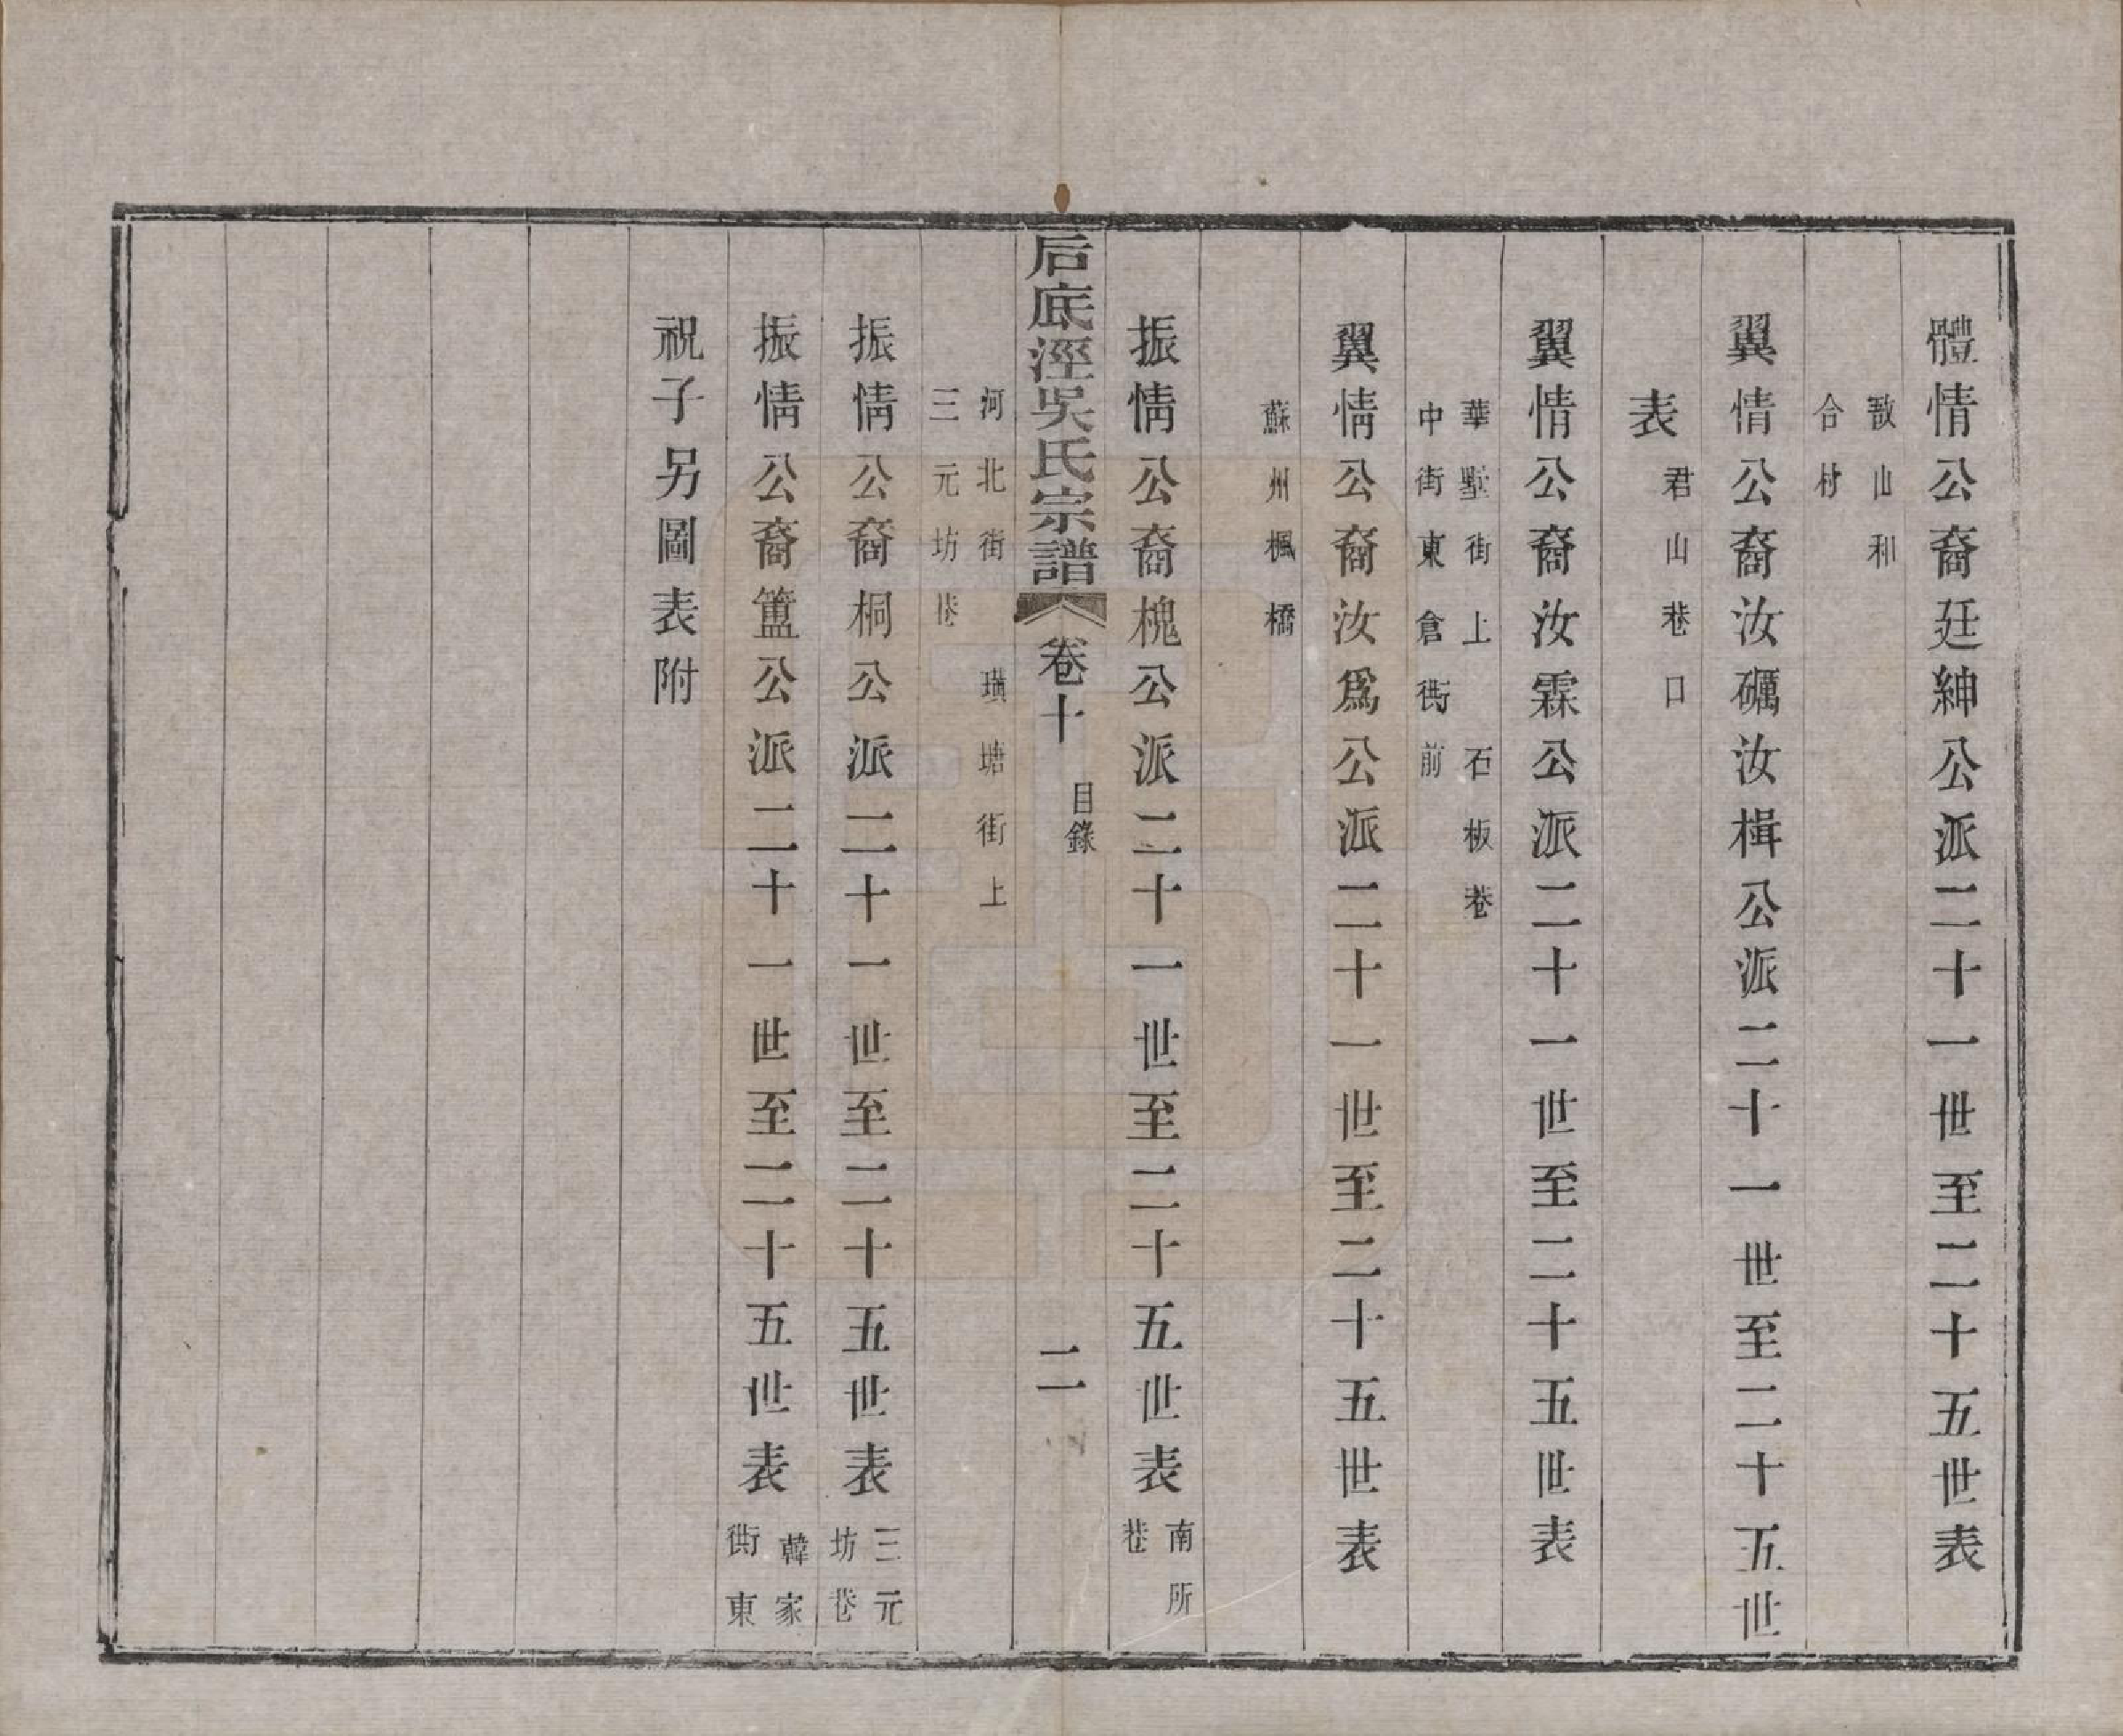 體情公裔廷紳公派二十一世至二十五世表
敔山和
合村
翼情公裔汝礪汝楫公派二十一世至二十五世
表 君山巷口
翼情公裔汝霖公派二十一世至二十五世表
華墅街上 石板巷
中街東倉衖前
翼情公裔汝爲公派二十一世至二十五世表
蘇州楓橋
振情公裔槐公派二十一世至二十五世表 南所巷
后底涇吳氏宗譜 卷十 目錄 二
河北街 璜塘街上
三元坊巷
振情公裔桐公派二十一世至二十五世表 三元坊巷
振情公裔簠公派二十一世至二十五世表 韓家衖東
祝子另圖表附